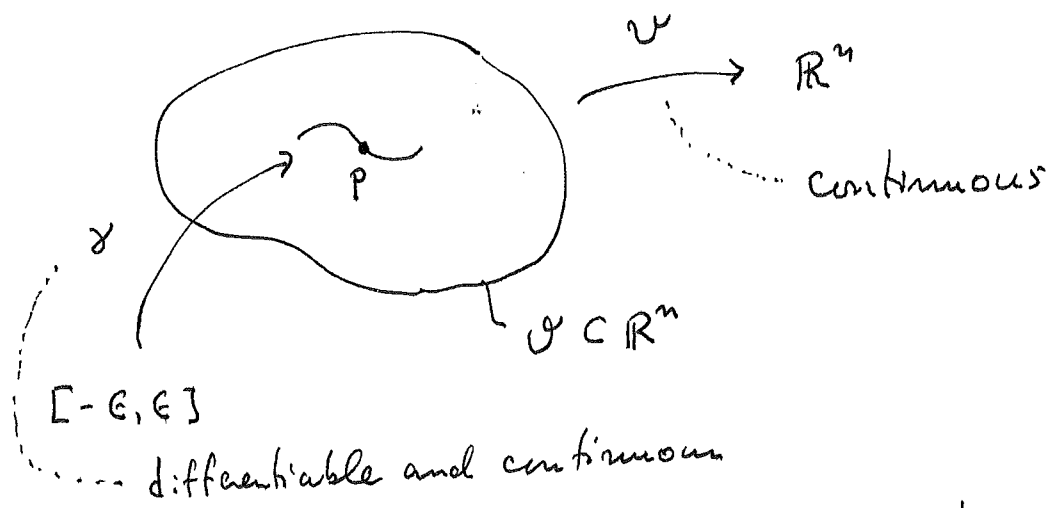 v
ℝⁿ
continuous
P
γ
𝒪 ⊂ ℝⁿ
[-ϵ, ϵ]
differentiable and continuous